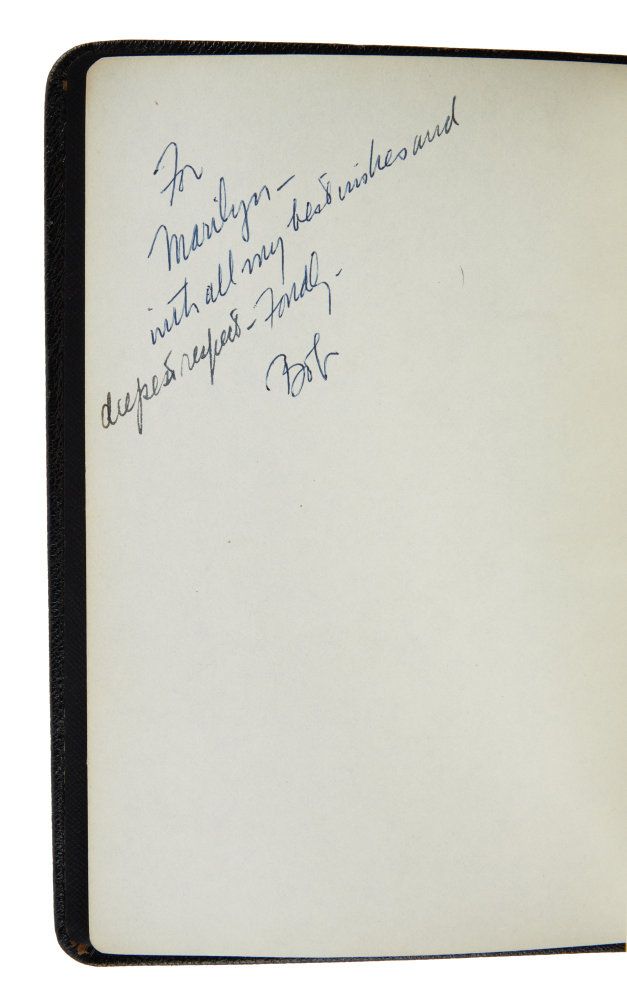 For
Marilyn –
with all my best wishes and
deepest respect – Fondly –
Bob